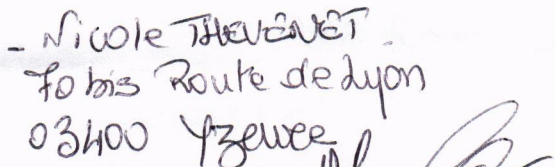 - Nicole THEVENET.
70 bis Route de Lyon
03400 Yzeure